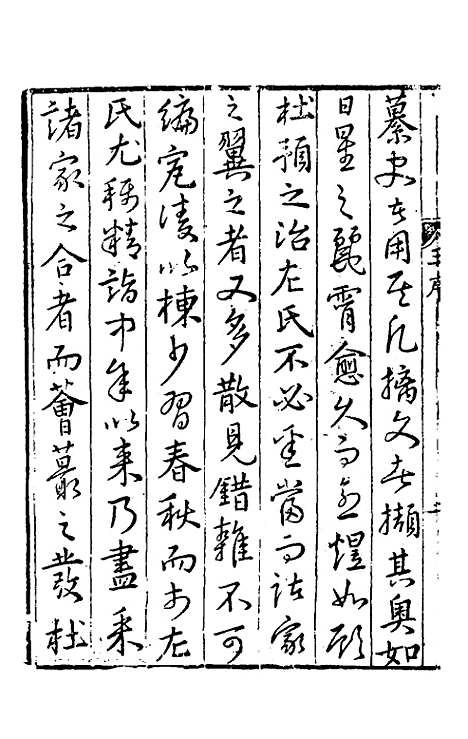 纂史者用其凡摛文者擷其奧如
日星之麗霄愈久而煜如顧
杜預之治左氏不必盡當而諸家
之翼之者又多散見錯雜不可
編究凌以棟少習春秋而於左
氏尤稱精詣中年以來乃盡采
諸家之合者而薈蕞之發杜